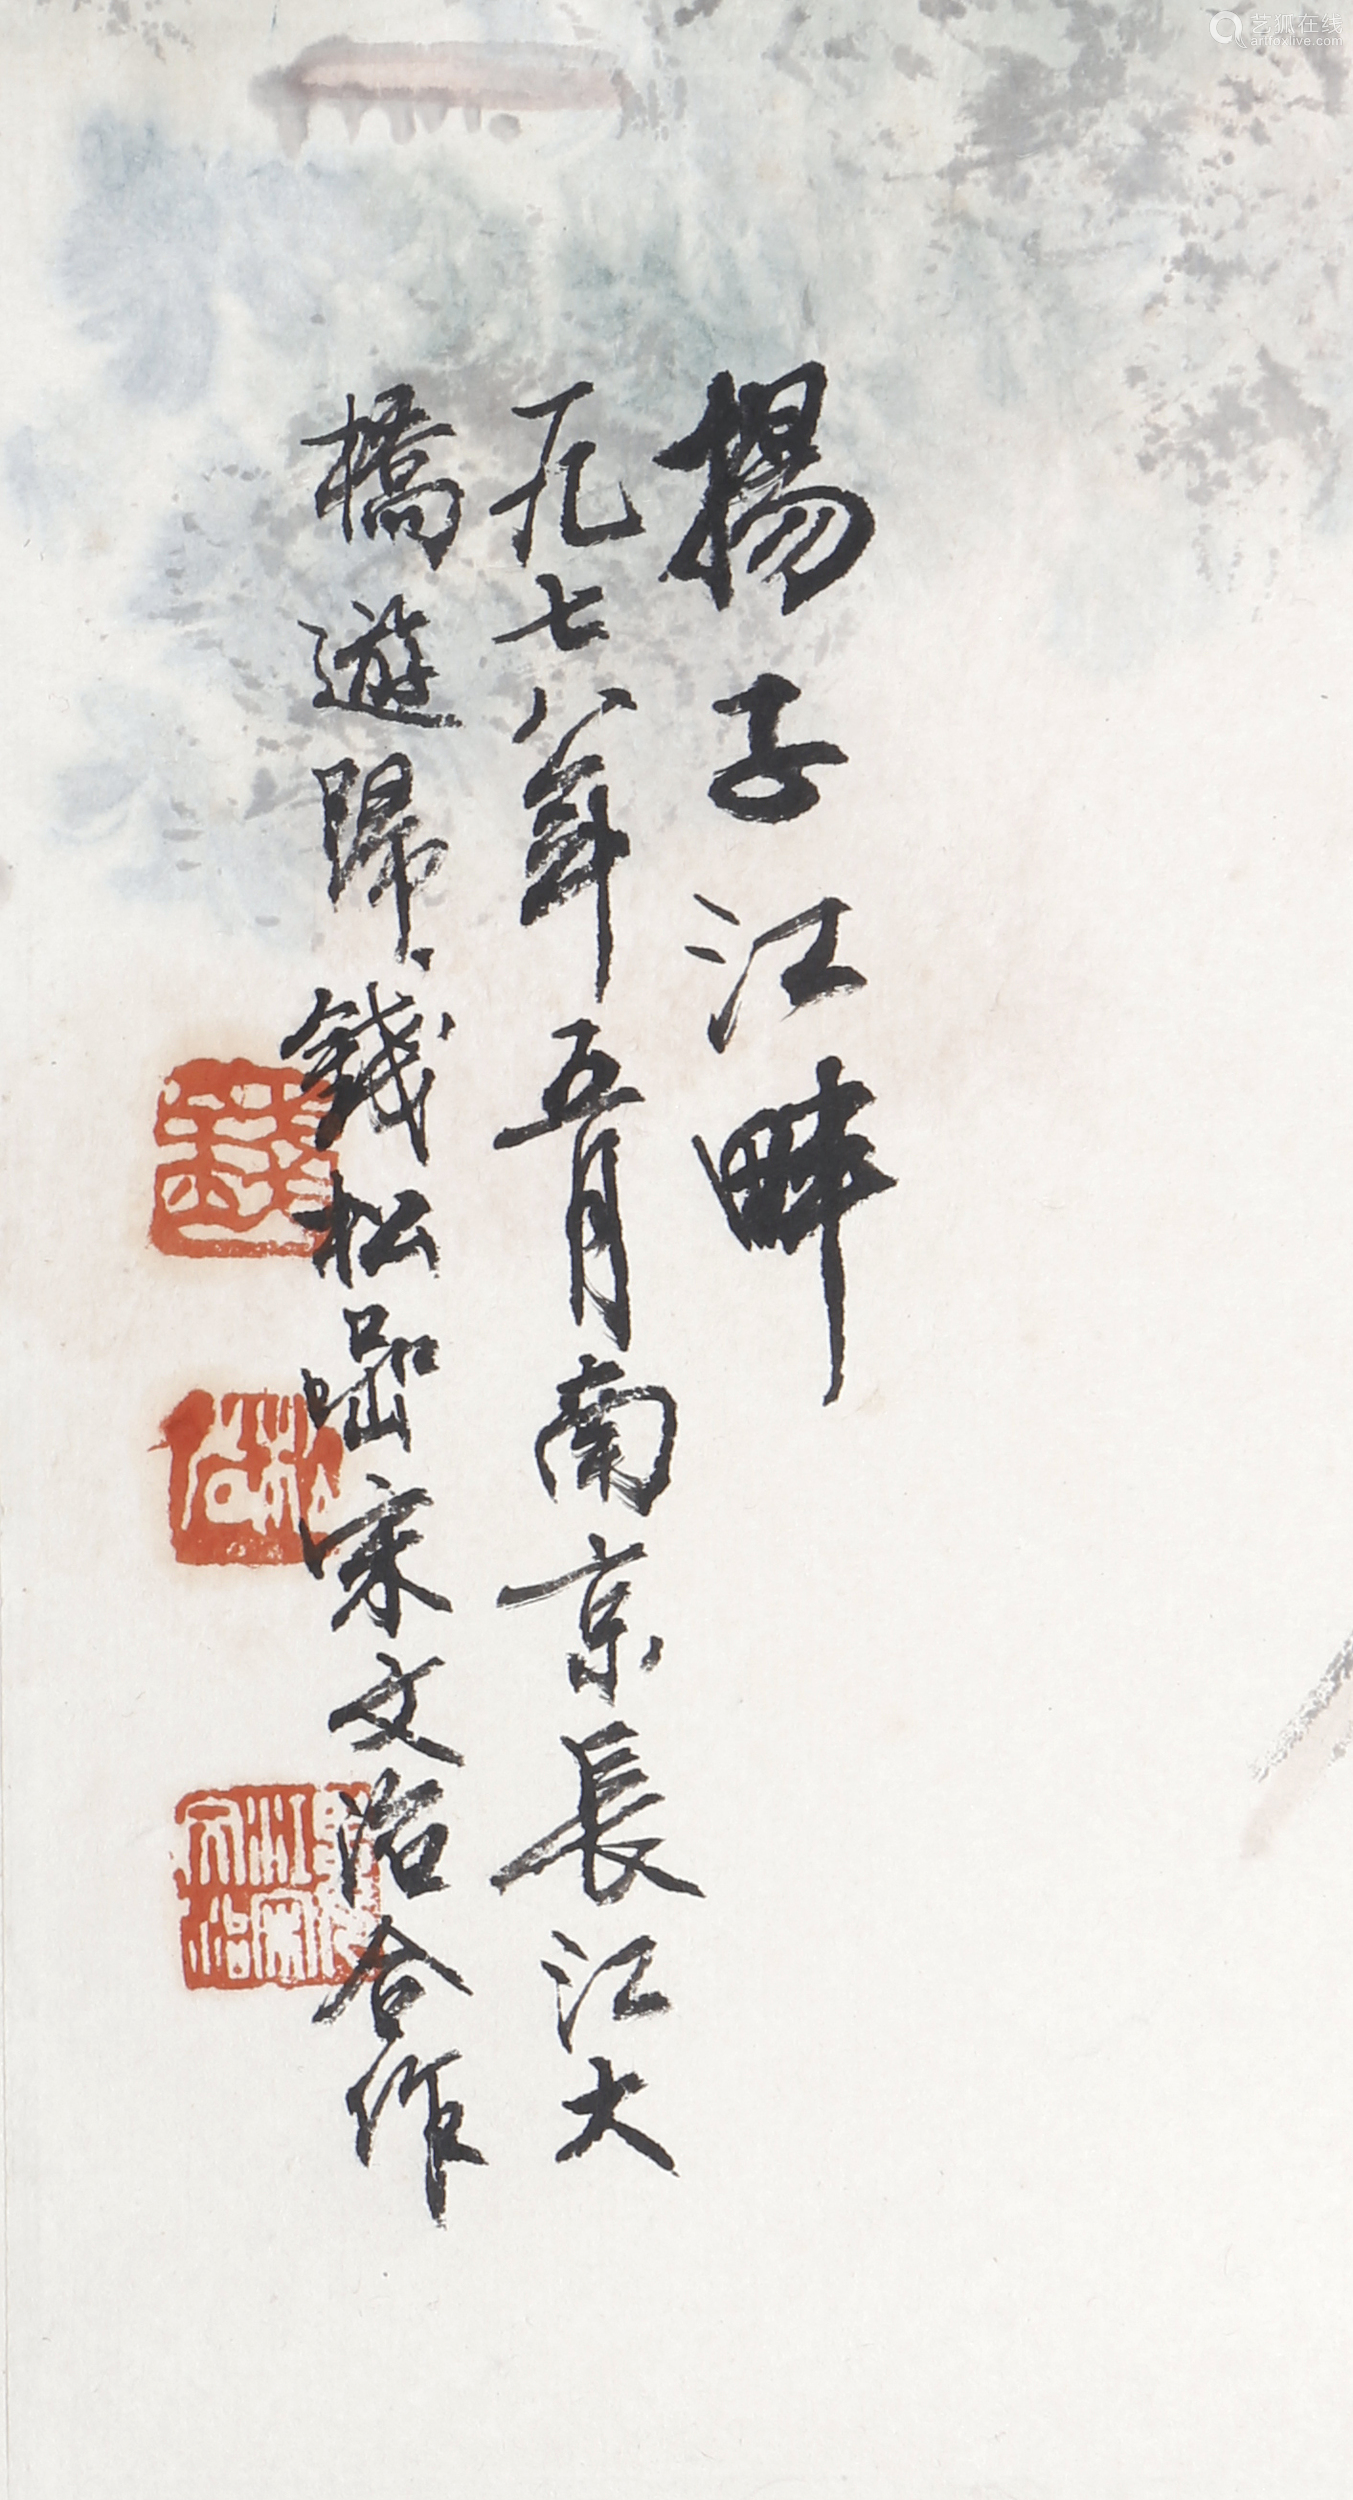 揚子江畔
一九七八年五月南京長江大
橋遊歸錢松嵒宋文治合作
艺狐在线
artfoxlive.com